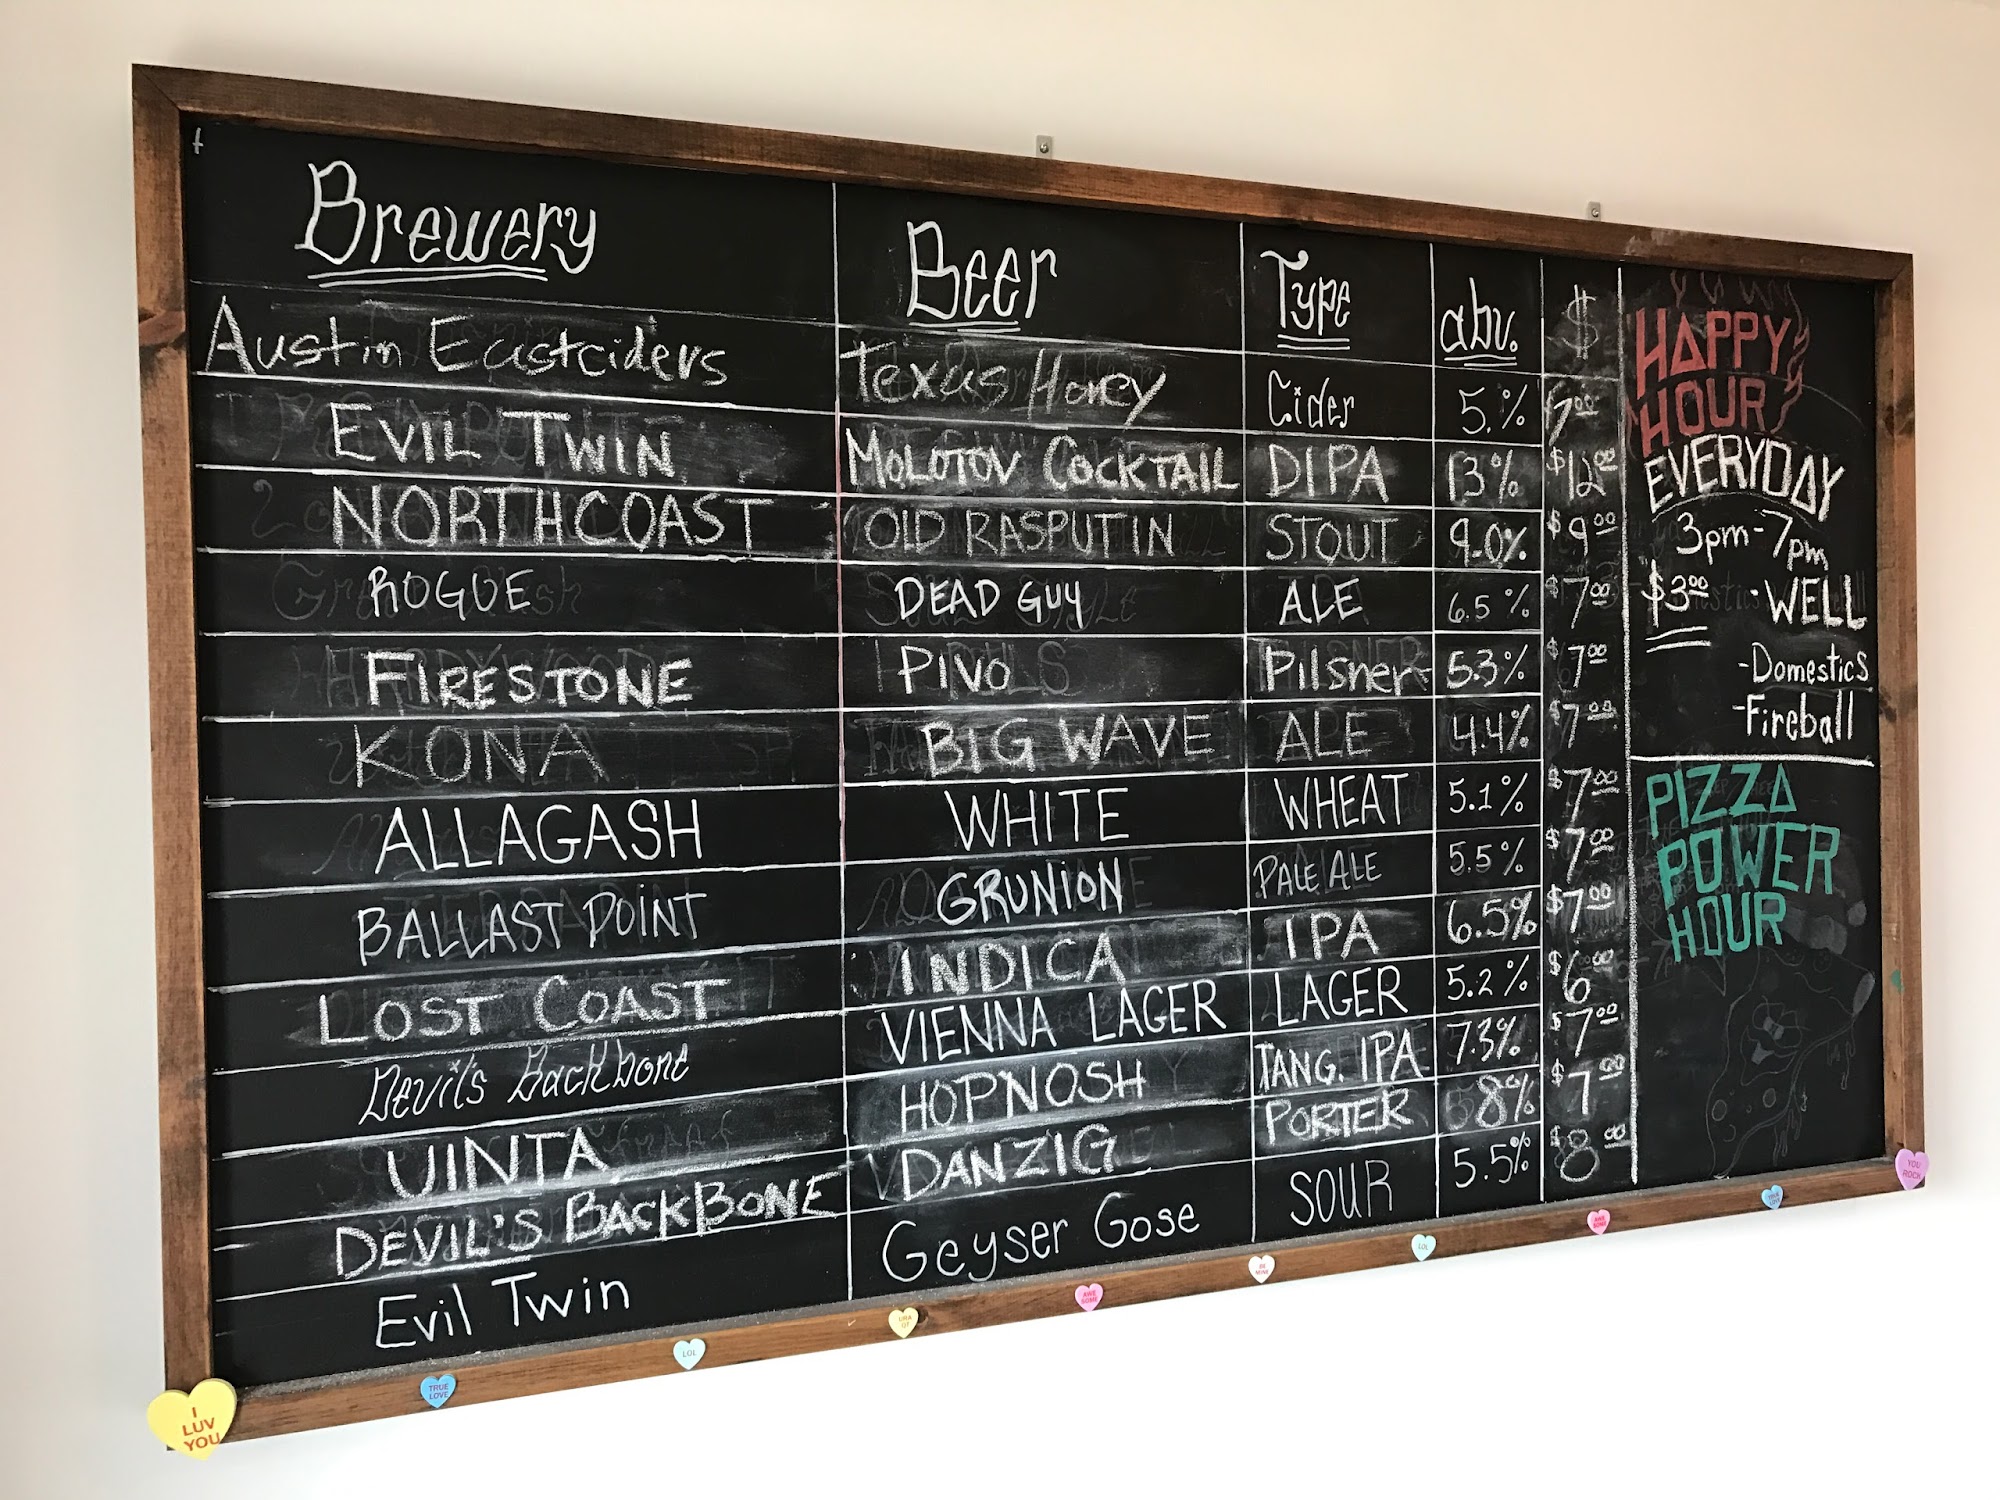 Brewery Beer Type abv. $
Austin Eastciders Texas Honey Cider 5.% $7.00
EVIL TWIN MOLOTOV COCKTAIL DIPA 13% $12.00
NORTHCOAST OLD RASPUTIN STOUT 9.0% $9.00
ROGUE DEAD GUY ALE 6.5% $7.00
FIRESTONE PIVO Pilsner 5.3% $7.00
KONA BIG WAVE ALE 4.4% $7.00
ALLAGASH WHITE WHEAT 5.1% $7.00
BALLAST POINT GRUNION PALE ALE 5.5% $7.00
LOST COAST INDICA IPA 6.5% $7.00
Devil's Backbone VIENNA LAGER LAGER 5.2% $6.00
UINTA HOPNOSH TANG. IPA 7.3% $7.00
DEVIL'S BACKBONE DANZIG PORTER 8% $7.00
Evil Twin Geyser Gose SOUR 5.5% $8.00
HAPPY
HOUR
EVERYDAY
3pm-7pm
$3.00 - WELL
-Domestics
-Fireball
PIZZA
POWER
HOUR
I
LUV
YOU
TRUE
LOVE
LOL
URA
QT
AWE
SOME
BE
MINE
LOL
AWE
SOME
TRUE
LOVE
YOU
ROCK